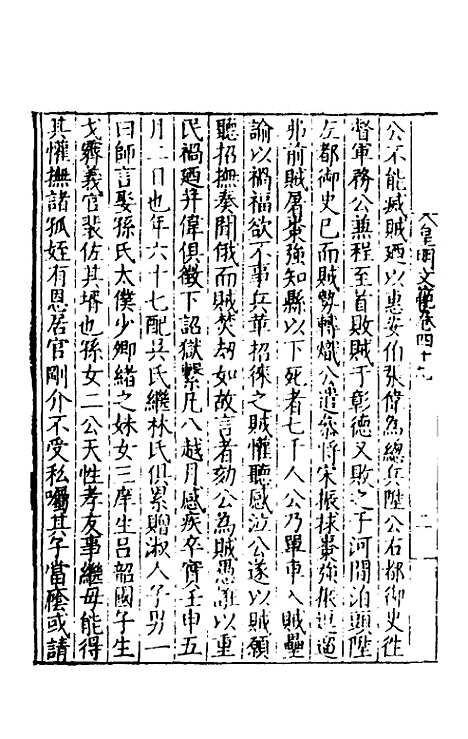 皇明文範卷四十九
二
公不能滅賊廼以惠安伯張偉為總兵陞公右都御史往
督軍務公兼程至首敗賊于彰德又敗之于河間泊頭陞
左都御史已而賊勢轉熾公遣叅將宋振捄棗強振逗遛
弗前賊屠棗強知縣以下死者七千人公乃單車入賊壘
諭以禍福欲不事兵革招徠之賊懽聽感泣公遂以賊願
聽招撫奏聞俄而賊焚刼如故言者劾公為賊愚誑以重
民禍廼并偉俱徵下詔獄繫凡八越月感疾卒實壬申五
月二日也年六十七配吳氏繼林氏俱累贈淑人子男一
曰師言娶孫氏太僕少卿緒之妹女三庠生呂韶國子生
戈霽義官裴佐其壻也孫女二公天性孝友事繼母能得
其懽撫諸孤姪有恩居官剛介不受私囑其子當廕或請